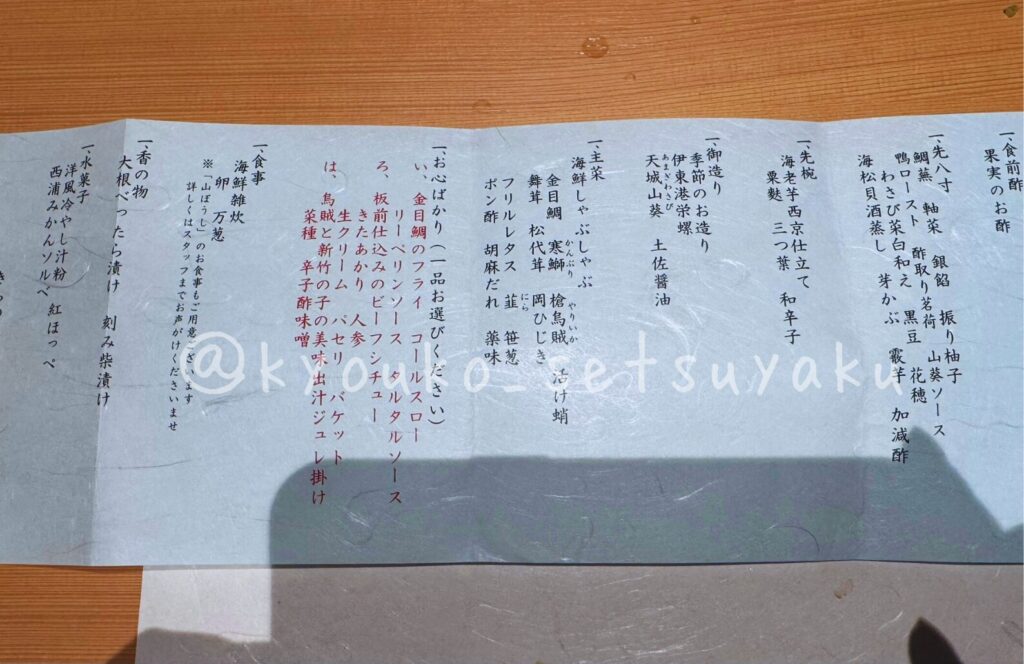 一、食前酢
果実のお酢
一、先八寸
鯛蕪 軸菜 銀餡 振り柚子
鴨ロースト 酢取り茗荷 山葵ソース
わさび菜白和え 黒豆 花穂
海松貝酒蒸し 芽かぶ 霰芋 加減酢
一、先椀
海老芋西京仕立て
粟麩 三つ葉 和辛子
一、御造り
季節のお造り
伊東港栄螺
天城山葵 土佐醤油
あまぎわさび
一、主菜
海鮮しゃぶしゃぶ
金目鯛 寒鰤 槍烏賊 活け蛸
かんぶり やりいか
舞茸 松代茸 岡ひじき
フリルレタス 韮 笹葱
にら
ポン酢 胡麻だれ 薬味
一、お心ばかり(一品お選びください)
い、金目鯛のフライ コールスロー
リーペリンソース タルタルソース
ろ、板前仕込みのビーフシチュー
きたあかり 人参
生クリーム パセリ バケット
は、烏賊と新竹の子の美味出汁ジュレ掛け
菜種 辛子酢味噌
一、食事
海鮮雑炊
卵 万葱
※「山ぼうし」のお食事もご用意ございます
詳しくはスタッフまでお声がけくださいませ
一、香の物
大根べったら漬け 刻み柴漬け
一、水菓子
洋風冷やし汁粉 紅ほっぺ
西浦みかんソルベ
@kyouko_setsuyaku